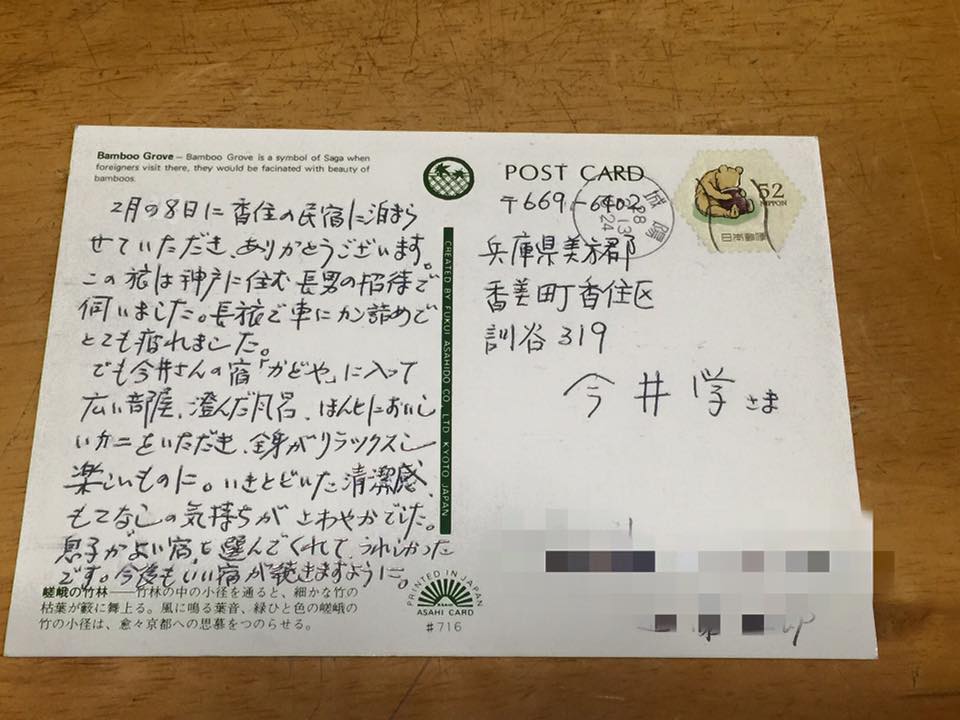 Bamboo Grove – Bamboo Grove is a symbol of Saga when
foreigners visit there, they would be facinated with beauty of
bamboos.
2月の8日に香住の民宿に泊まら
せていただき、ありがとうございます。
この旅は神戸に住む長男の招待で
伺いました。長旅で車にカン詰めで
とても疲れました。
でも今井さんの宿「かどや」に入って
広い部屋、澄んだ風呂、ほんとにおいし
いカニをいただき、全身がリラックスし
楽しいものに。いきとどいた清潔感、
もてなしの気持ちが さわやかでした。
息子がよい宿を選んでくれて、うれしかった
です。今後もいい宿が続きますように。
嵯峨の竹林――竹林の中の小径を通ると、細かな竹の
枯葉が籔に舞上る。風に鳴る葉音、緑ひと色の嵯峨の
竹の小径は、愈々京都への思慕をつのらせる。
CREATED BY FUKUI ASAHIDO CO., LTD. KYOTO JAPAN
PRINTED IN JAPAN
ASAHI CARD
#716
POST CARD
〒669-6402
兵庫県美方郡
香美町香住区
訓谷319
今井 学 さま
城陽
28
13
24
52
NIPPON
日本郵便